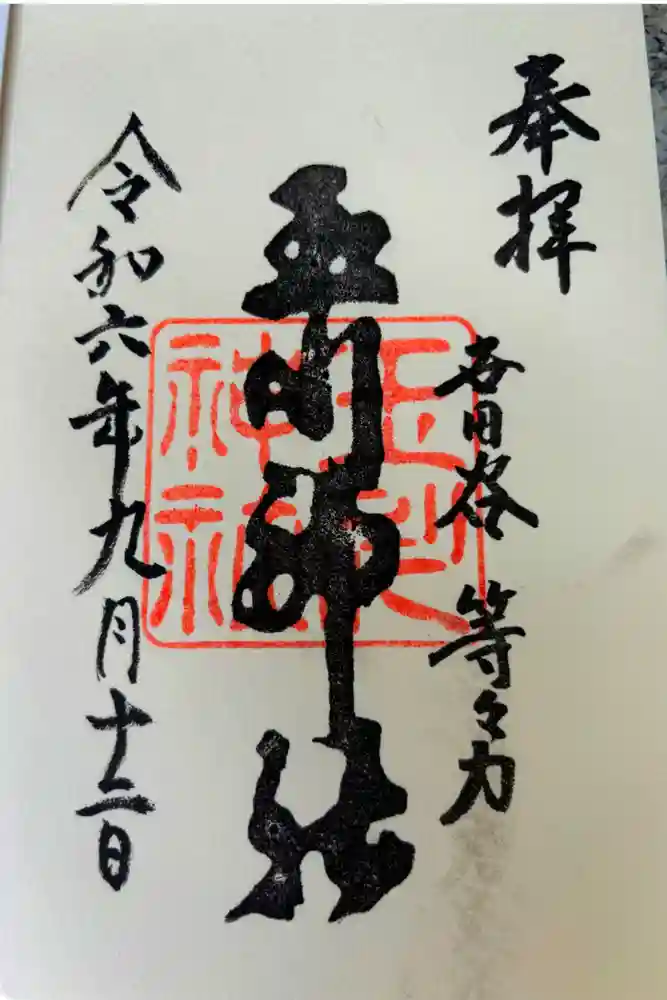 奉拝
世田谷 等々力
玉川神社
玉川神社
令和六年九月十二日